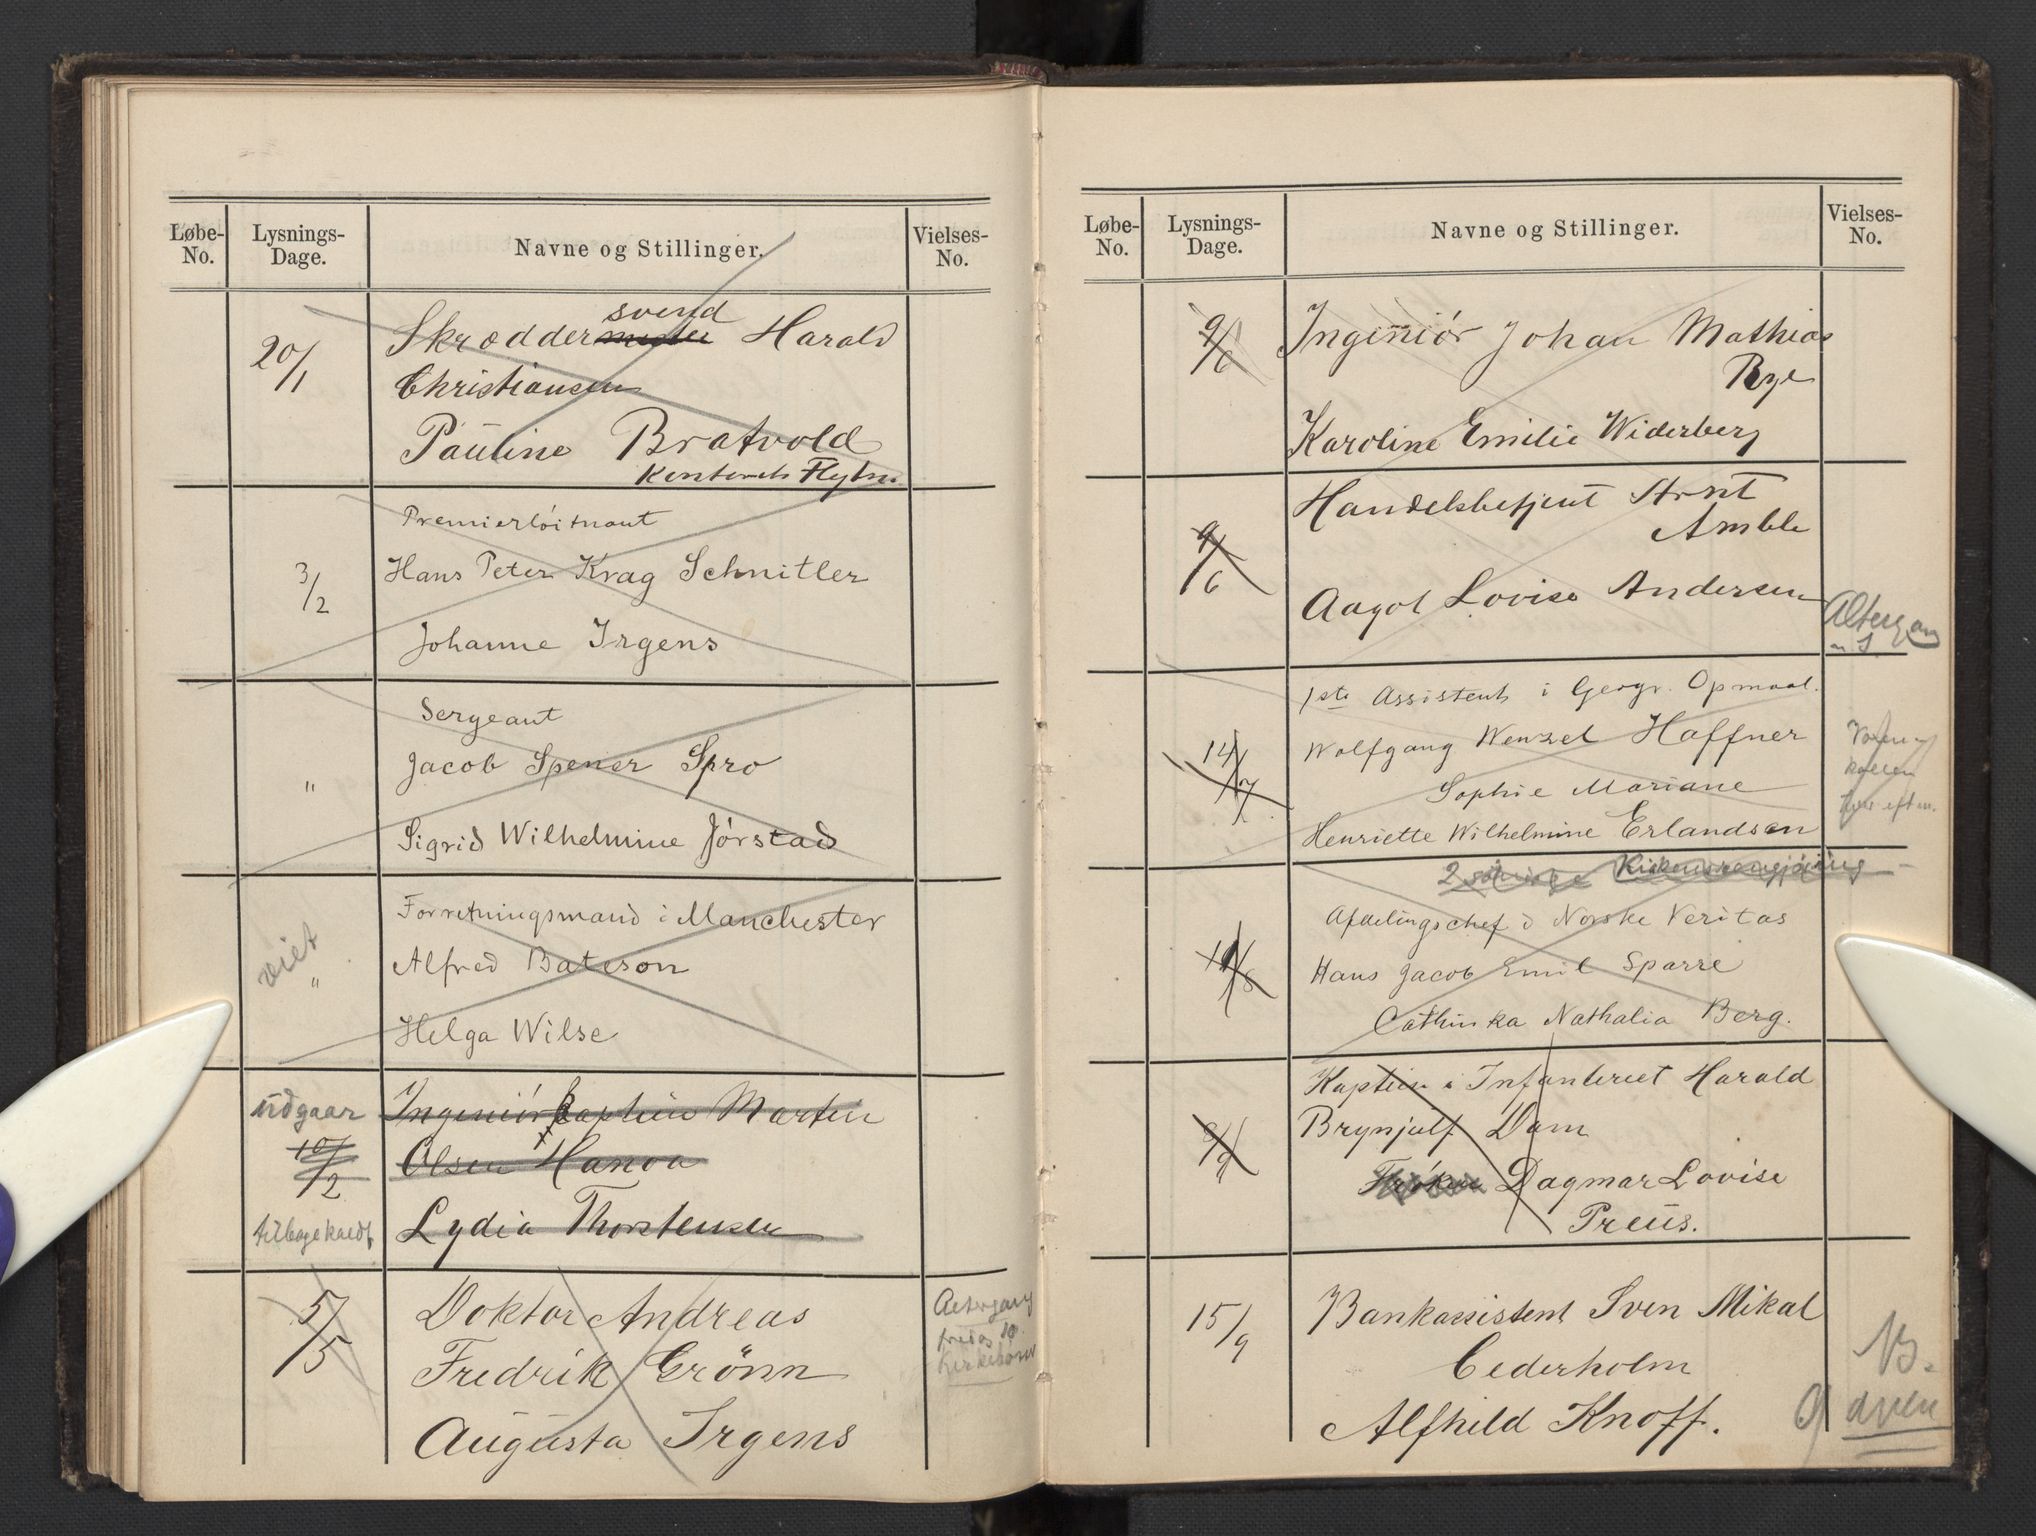 Løbe-No. Lysnings-Dage. Navne og Stillinger. Vielses-No.
20/1
svend
Skræddermester Harald
Christiansen
Pauline Bratvold
Premierløitnant
3/2
Hans Peter Krag Schnitler
Johanne Irgens
Sergeant
"
Jacob Spener Spro
Sigrid Wilhelmine Jørstad
Forretningsmand i Manchester
viet
"
Alfred Bateson
Helga Wilse
udgaar
Ingeniørkaptein Martin
10/2
Olsen Hanoa
tilbagekaldt
Lydia Thorstensen
5/5
Doktor Andreas
Fredrik Grönn
Augusta Irgens
Altergang
Løbe-No. Lysnings-Dage. Navne og Stillinger. Vielses-No.
9/6
Ingeniør Johan Mathias
Rye
Karoline Emilie Widerberg
Handelsbetjent Arnt
9/6
Amble
Aagot Lovise Andersen
Altergang
1ste Assistent i Geogr. Opmaal.
14/7
Wolfgang Wenzel Haffner
Sophie Mariane
Henriette Wilhelmine Erlandsen
Afdelingschef i Norske Veritas
Hans Jacob Emil Sparre
Cathinka Nathalia Berg.
Kaptein i Infanteriet Harald
9/9
Brynjulf Dam
Frøken Dagmar Lovise
Preus.
15/9
Bankassistent Sven Mikal
Cederholm
Alfhild Knoff.